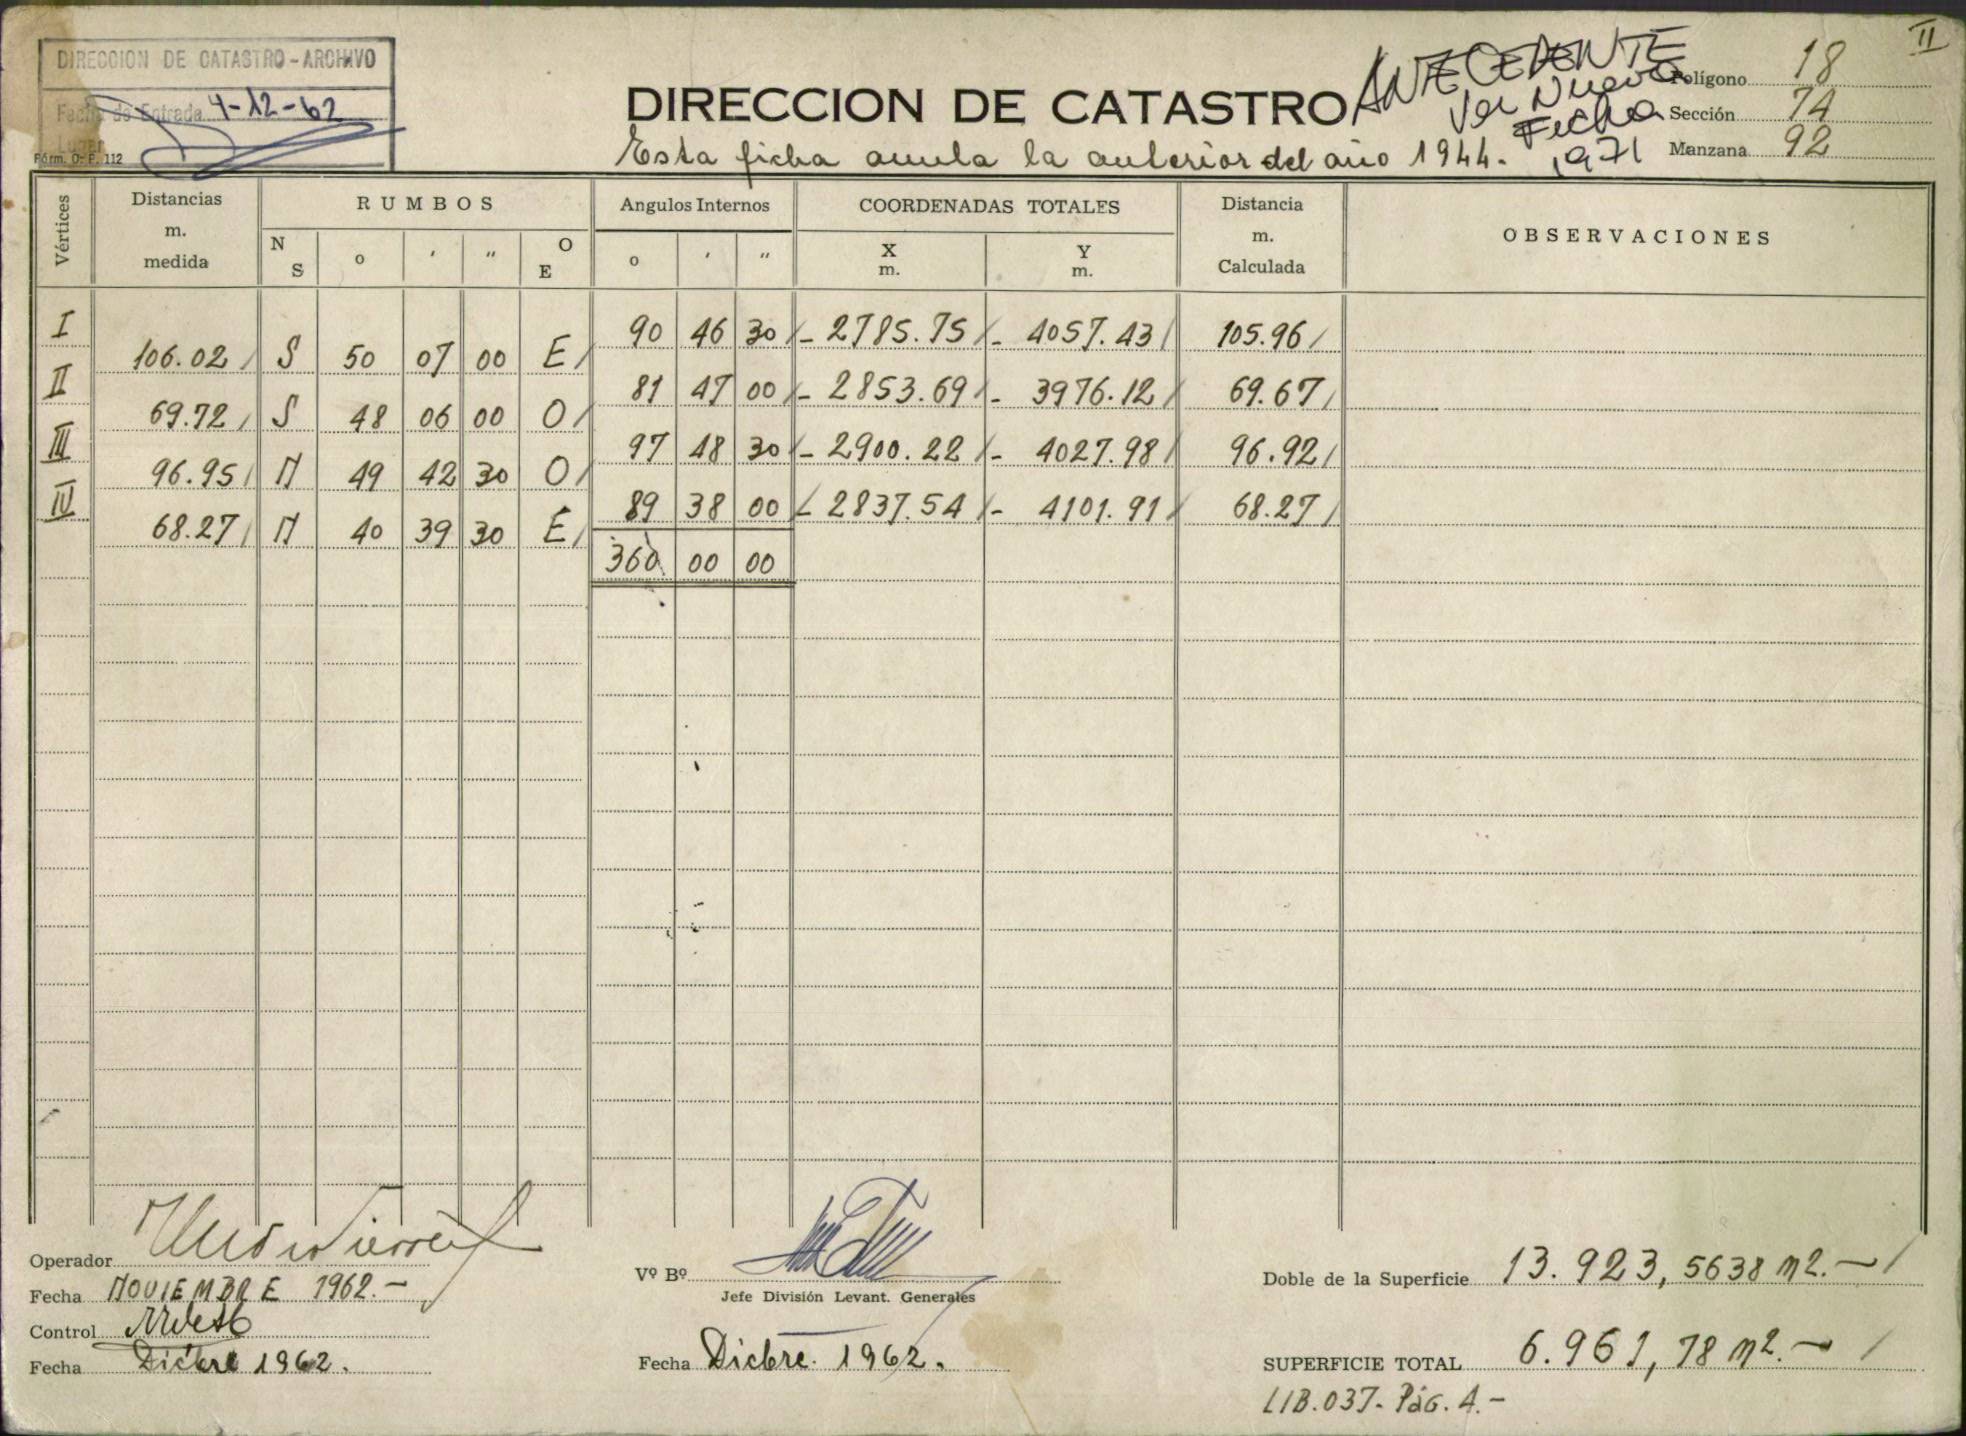 II
DIRECCION DE CATASTRO - ARCHIVO
Fecha de Entrada 4-12-62
Lugar
Fórm. O. P. 112
DIRECCION DE CATASTRO
ANTECEDENTE
Ver Nueva
Fecha
1971
Esta ficha anula la anterior del año 1944.-
Polígono 18
Sección 74
Manzana 92
Vértices Distancias m. medida RUMBOS Angulos Internos COORDENADAS TOTALES Distancia m. Calculada OBSERVACIONES
N S o ' " O E o ' " X m. Y m.
I 90 46 30 - 2785.75 - 4057.43 105.96
106.02 S 50 07 00 E
II 81 47 00 - 2853.69 - 3976.12 69.67
69.72 S 48 06 00 O
III 97 48 30 - 2900.22 - 4027.98 96.92
96.95 N 49 42 30 O
IV 89 38 00 - 2837.54 - 4101.91 68.27
68.27 N 40 39 30 E
360 00 00
Operador
Fecha NOVIEMBRE 1962.-
Control
Fecha Dicbre 1962.
Vº Bº
Jefe División Levant. Generales
Fecha Dicbre. 1962.
Doble de la Superficie 13.923,5638 m2.-
SUPERFICIE TOTAL 6.961,78 m2.-
LIB.037- Pág. 4.-